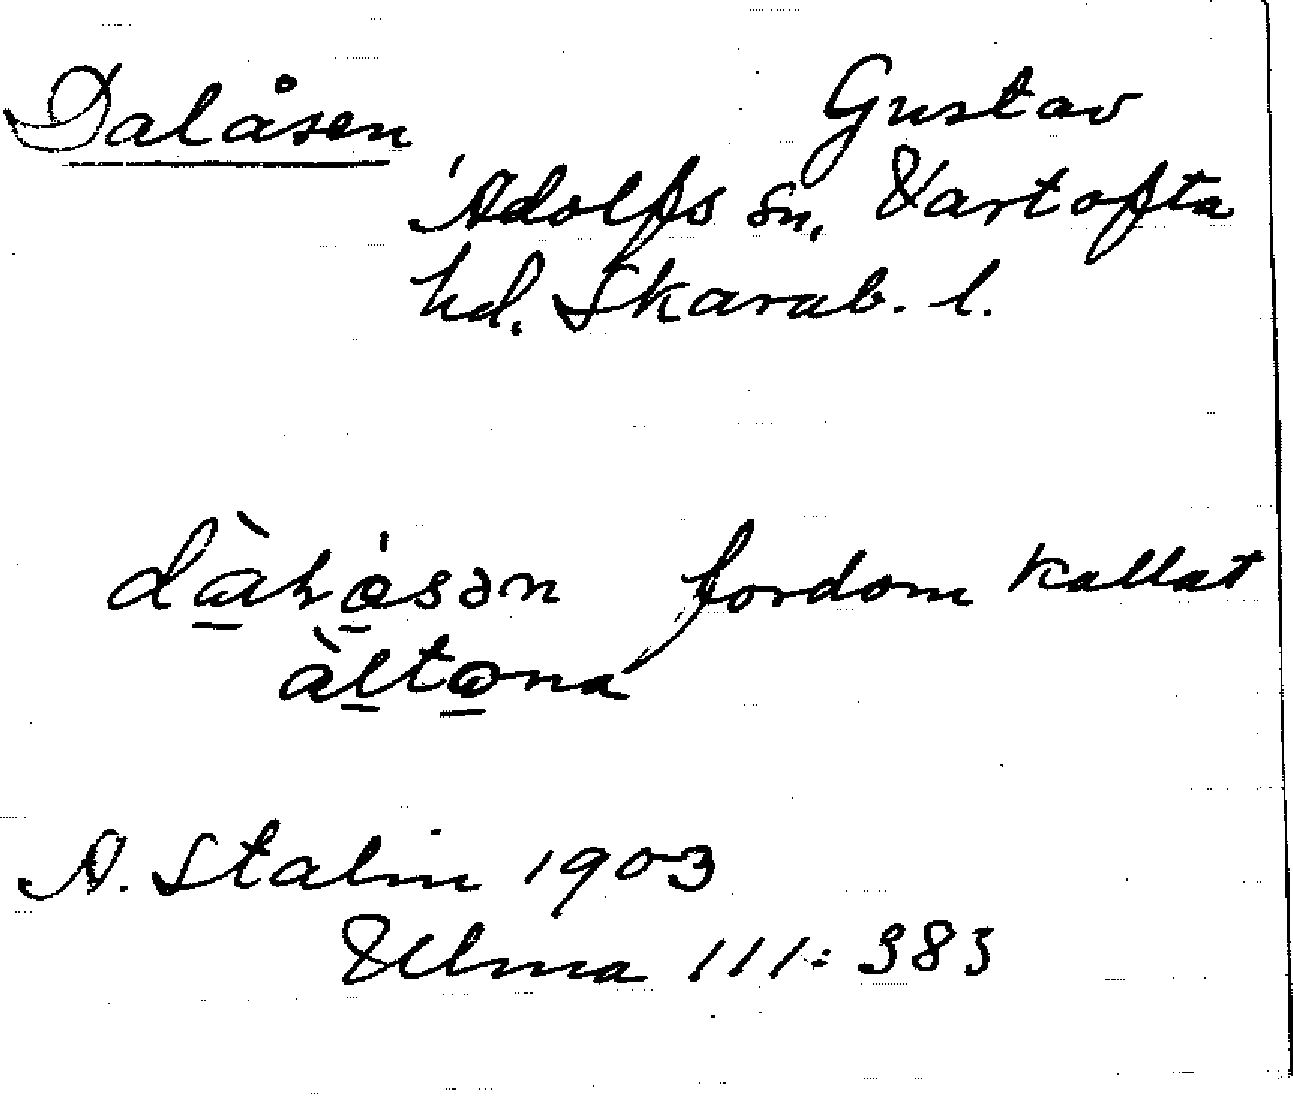 Dalåsen Gustav
Adolfs sn, Vartofta
hd. Skarab. l.
dàḷåsən fordom kallat
àltona
A. Stalin 1903
Ulma 111:383